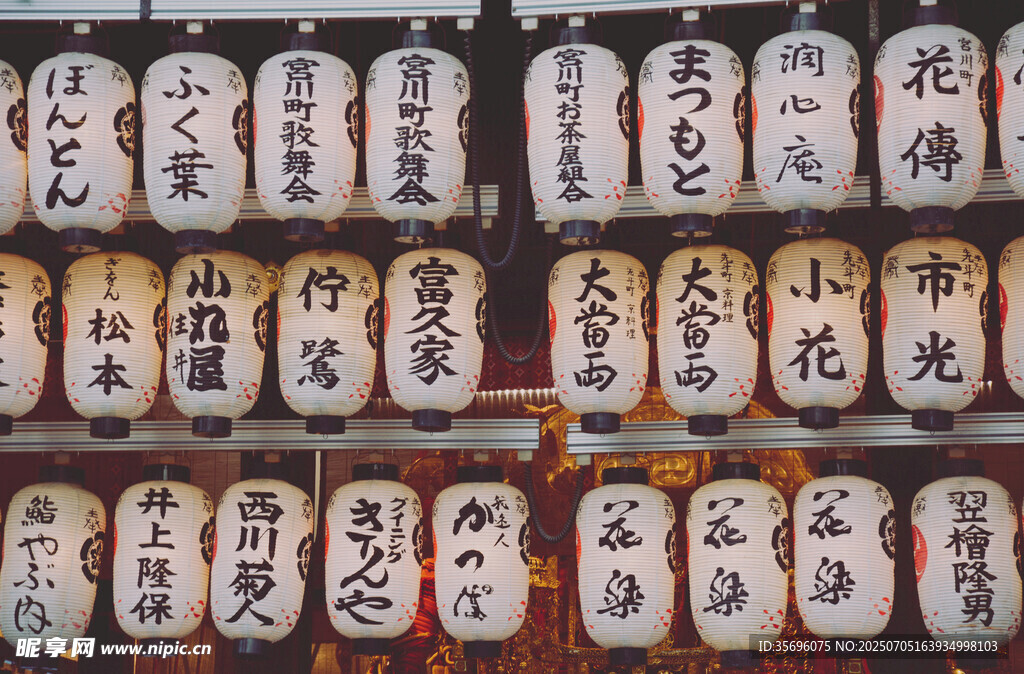 ぼんとん
ふく葉
宮川町歌舞会
宮川町歌舞会
宮川町お茶屋組合
まつもと
潤心庵
宮川町
花傳
ぎをん
松本
小丸屋
住井
佇
鷺
富久家
京料理
大當両
京料理
大當両
先斗町
小花
先斗町
市光
鮨
やぶ内
井上隆保
西川菊人
ダイニング
きりんや
我逢人
かつぱ
花梁
花梁
花梁
翌檜隆男
昵享网 www.nipic.cn
ID:35696075 NO:20250705163934998103